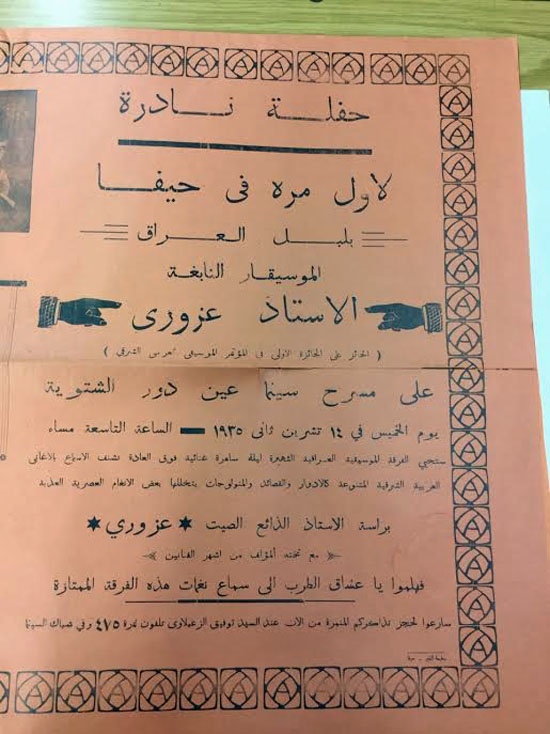 حفلة نادرة
لاول مره فى حيفا
بلبل العراق
الموسيقار النابغة
الاستاذ عزورى
( الحائز على الجائزة الاولى فى المؤتمر الموسيقى العربى الشرقى )
على مسرح سينما عين دور الشتوية
يوم الخميس في ١٤ تشرين ثانى ١٩٣٥ — الساعة التاسعة مساء
ستحيي الفرقة الموسيقية العراقية الشهيرة ليلة ساهرة غنائية فوق العادة تشنف الاسماع بالاغانى
العربية الشرقية المتنوعة كالادوار والقصائد والمنولوجات يتخللها بعض الانغام العصرية العذبة
براسة الاستاذ الذائع الصيت * عزوري *
مع تخته المؤلف من اشهر الفنانين
فهلموا يا عشاق الطرب الى سماع نغمات هذه الفرقة الممتازة
سارعوا لحجز تذاكركم المنمرة من الان عند السيد توفيق الزعبلاوى تلفون نمرة ٤٧٥ وفي شباك السينما